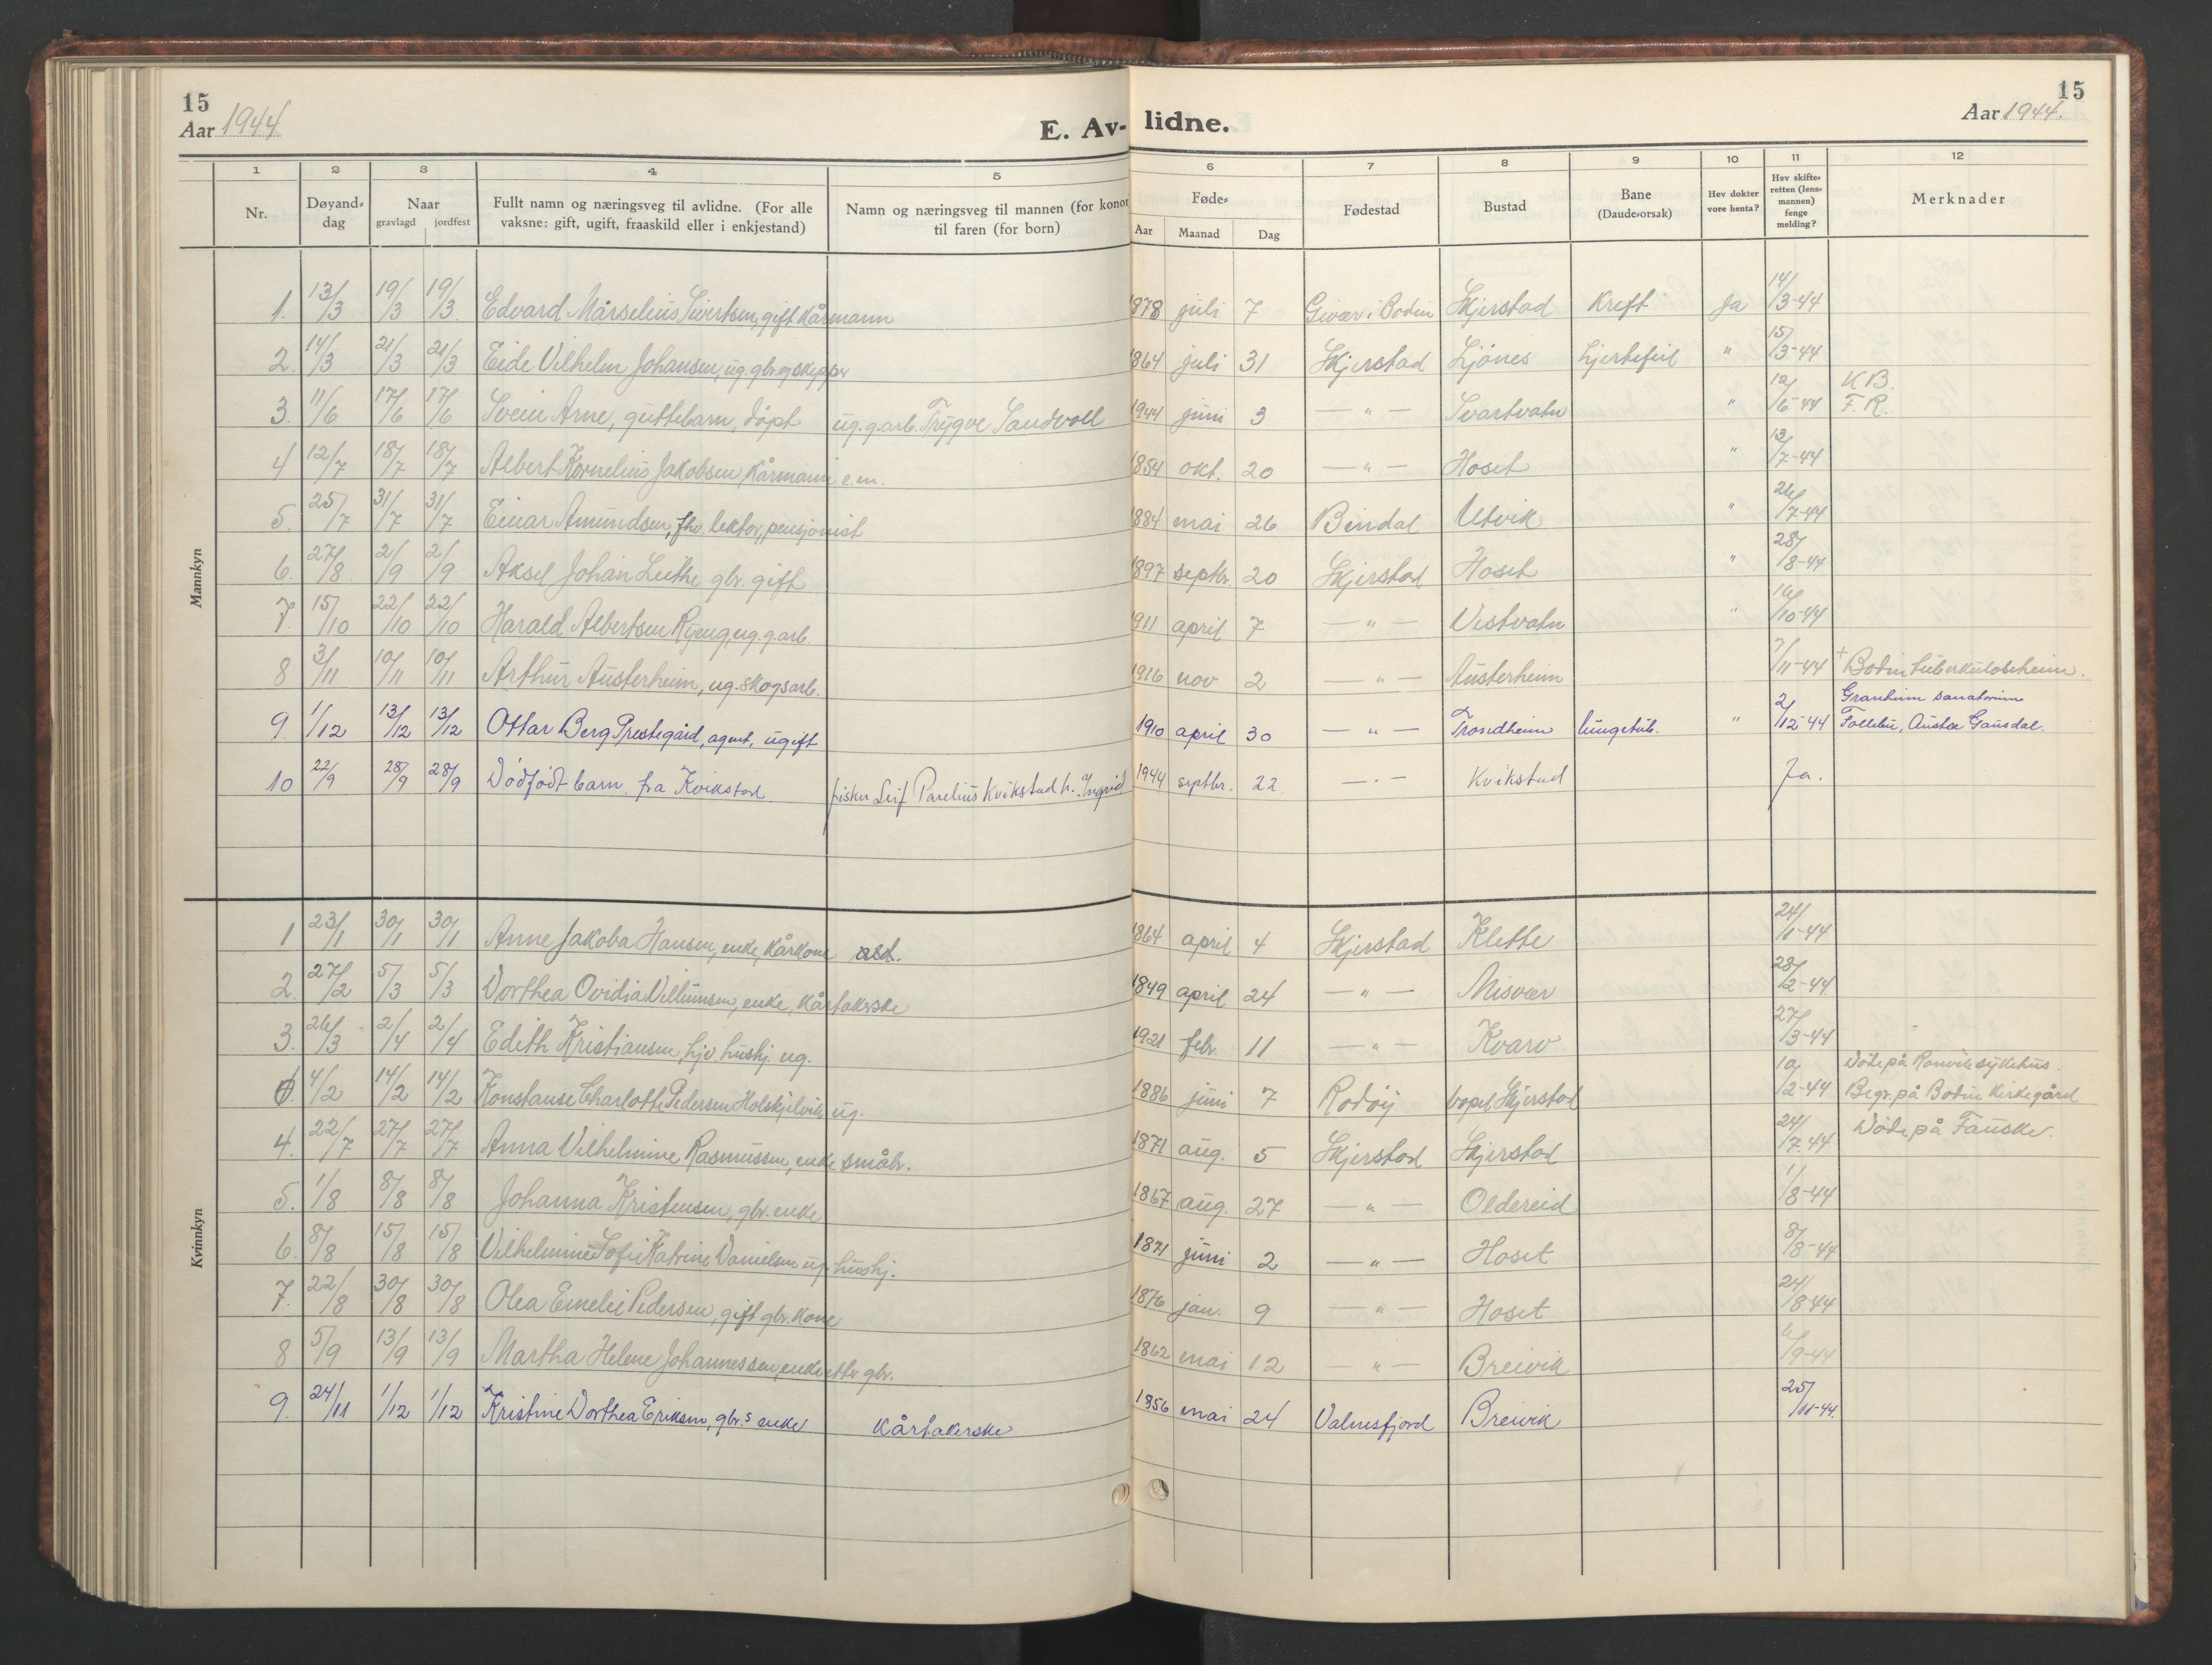 15
Aar 1944
E. Av-lidne.
15
Aar 1944.
1 2 3 4 5 6 7 8 9 10 11 12
Nr. Døyand-dag Naar gravlagd jordfest Fullt namn og næringsveg til avlidne. (For alle vaksne: gift, ugift, fraaskild eller i enkjestand) Namn og næringsveg til mannen (for konor til faren (for born) Føde- Aar Maanad Dag Fødestad Bustad Bane (Daude-orsak) Hev dokter vore henta? Hev skifte-retten (lens-mannen) fenge melding? Merknader
Mannkyn
1. 13/3 19/3 19/3 Edvard Mårselius Sivertsen, gift kårmann 1878 juli 7 Givær i Bodin Skjerstad Kreft Ja 14/3-44
2. 14/3 21/3 21/3 Eide Vilhelm Johansen, ug. gbr. og skipper 1864 juli 31 Skjerstad Ljønes hjertefeil " 15/3-44
3. 11/6 17/6 17/6 Svein Arne, guttebarn, döpt ug. g.arb. Trygve Sandvoll 1944 juni 3 — " — Svartvatn " 12/6-44 K.B. F.R.
4 12/7 18/7 18/7 Albert Kornelius Jakobsen kårmann e.m. 1854 okt. 20 — " — Hoset " 13/7-44
5. 25/7 31/7 31/7 Einar Amundsen, fhv. lektor, pensjonist 1884 mai 26 Bindal Utvik " 26/7-44
6. 27/8 2/9 2/9 Aksel Johan Leithe gbr. gift 1897 septbr. 20 Skjerstad Hoset " 28/8-44
7. 15/10 22/10 22/10 Harald Albertsen Ryeng, ug. g.arb. 1911 april 7 — " — Vestvatn " 16/10-44
8 3/11 10/11 10/11 Arthur Austerheim, ug. skogsarb. 1916 nov 2 — " — Austerheim 7/11-44 + Bodin tuberkuloseheim.
9. 1/12 13/12 13/12 Ottar Berg Prestegård, agent, ugift 1910 april 30 — " — Trondheim lungetub. " 2/12-44 Granheim sanatorium Follebu, Austre Gausdal.
10 22/9 28/9 28/9 Dødfödt barn fra Kvikstad. fisker Leif Parelius Kvikstad h. Ingrid 1944 septbr. 22. — " — Kvikstad Ja.
Kvinnkyn
1 23/1 30/1 30/1 Anne Jakoba Hansen, enke, kårkone 1864 april 4 Skjerstad Klette 24/1-44
2. 27/2 5/3 5/3 Dorthea Ovidia Villumsen, enke, kårtakerske 1849 april 24 — " — Misvær 28/2-44
3. 26/3 2/4 2/4 Edith Kristiansen, hjv. hushj. ug. 1921 febr. 11 — " — Kvarv 27/3-44
4/2 14/2 14/2 Konstanse Charlotte Pedersen Holskjelvik ug. 1886 juni 7 Rodöy bopel Skjerstad 10/2-44 Döde på Rønvik sykehus. Begr. på Bodin kirkegård
4. 22/7 27/7 27/7 Anna Vilhelmine Rasmussen, enke småbr. 1871 aug. 5 Skjerstad Skjerstad 24/7-44 Döde på Fauske.
5. 1/8 8/8 8/8 Johanna Kristensen, gbr. enke 1867 aug. 27 — " — Oldereid 1/8-44
6. 8/8 15/8 15/8 Vilhelmine Sofie Katrine Danielsen ug. hushj. 1871 juni 2 — " — Hoset 8/8-44
7. 22/8 30/8 30/8 Olea Emelie Pedersen, gift gbr. kone 1876 jan. 9 — " — Hoset 24/8-44
8 5/9 13/9 13/9 Martha Helene Johannessen, enke etter gbr. 1862 mai 12 — " — Breivik 6/9-44
9. 24/11 1/12 1/12 Kristine Dorthea Eriksen, gbr.s enke kårtakerske 1856 mai 24 Valnesfjord Breivik 25/11-44.